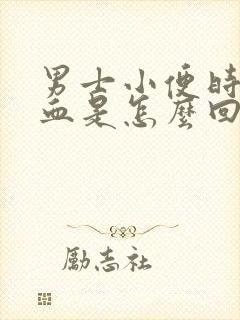 男士小便時
血是怎麼回
勵志社